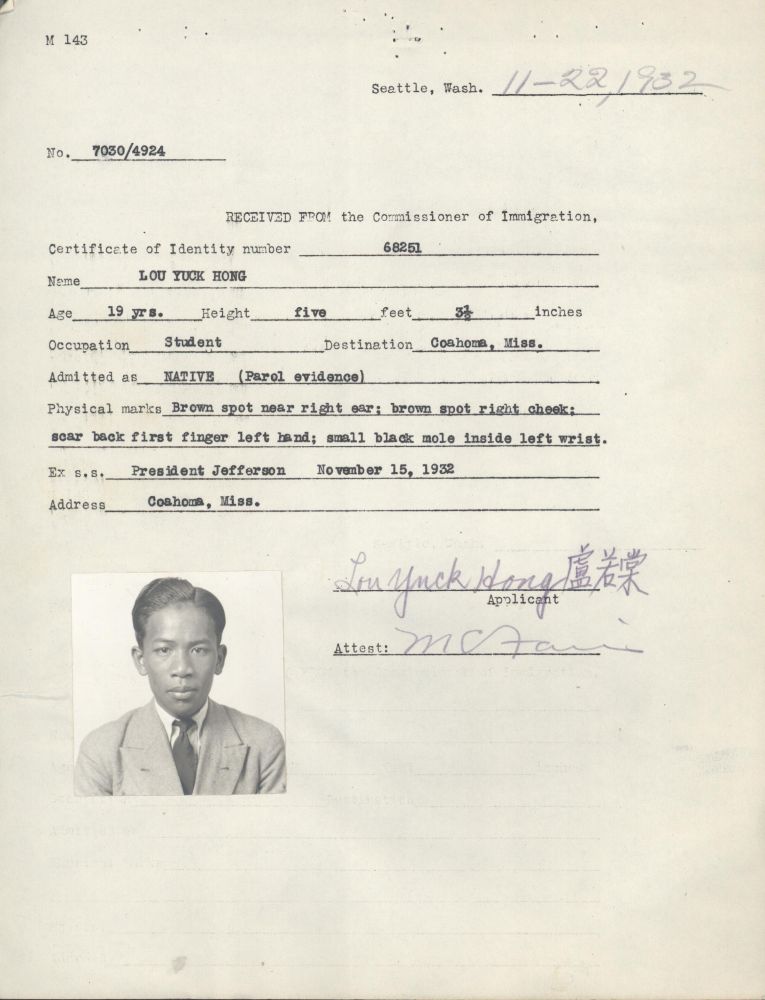 M 143
Seattle, Wash. 11-22, 1932
No. 7030/4924
RECEIVED FROM the Commissioner of Immigration,
Certificate of Identity number 68251
Name LOU YUCK HONG
Age 19 yrs. Height five feet 3½ inches
Occupation Student Destination Coahoma, Miss.
Admitted as NATIVE (Parol evidence)
Physical marks Brown spot near right ear; brown spot right cheek;
scar back first finger left hand; small black mole inside left wrist.
Ex s.s. President Jefferson November 15, 1932
Address Coahoma, Miss.
Lou Yuck Hong 盧若棠
Applicant
Attest: